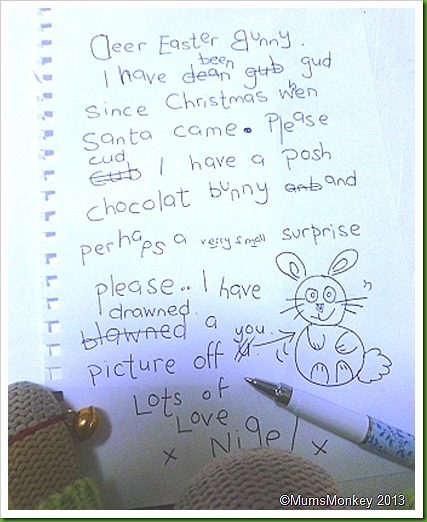 Deer Easter Bunny.
been
I have dean gub gud
since Christmas when
Santa came. Please
cud
cub I have a posh
chocolat bunny anb and
perhaps a very small surprise
please.. I have
drawned.
blawned a you.
picture off
Lots of
Love
x Nigel x
©MumsMonkey 2013